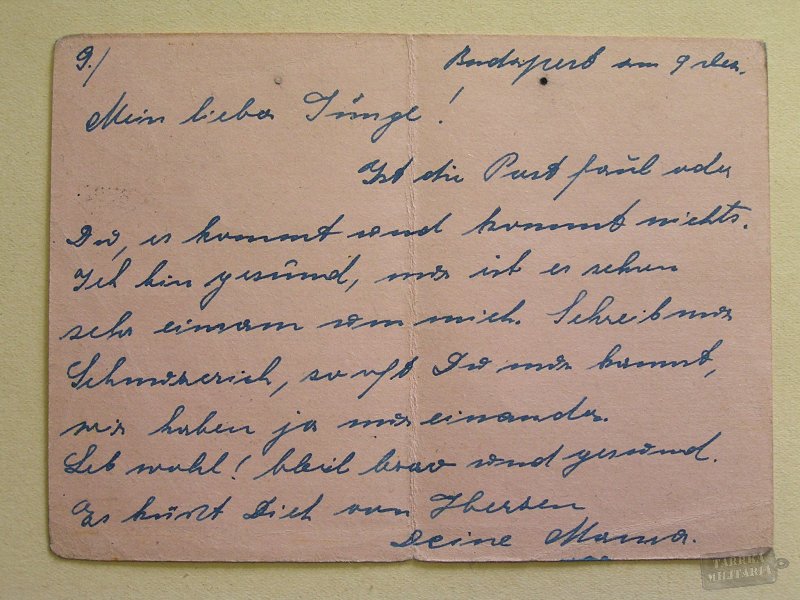 9./ Budapest am 9 dez.
Mein lieber Junge!
Ist die Post faul oder
Du, es kommt und kommt nichts.
Ich bin gesund, nur ist es schon
sehr einsam um mich. Schreib nur
so oft Du nur kannst,
wir haben ja nur einander.
Leb wohl! bleib brav und gesund.
Es küsst Dich von Herzen
Deine Mama.
TARRKA
MILITARIA